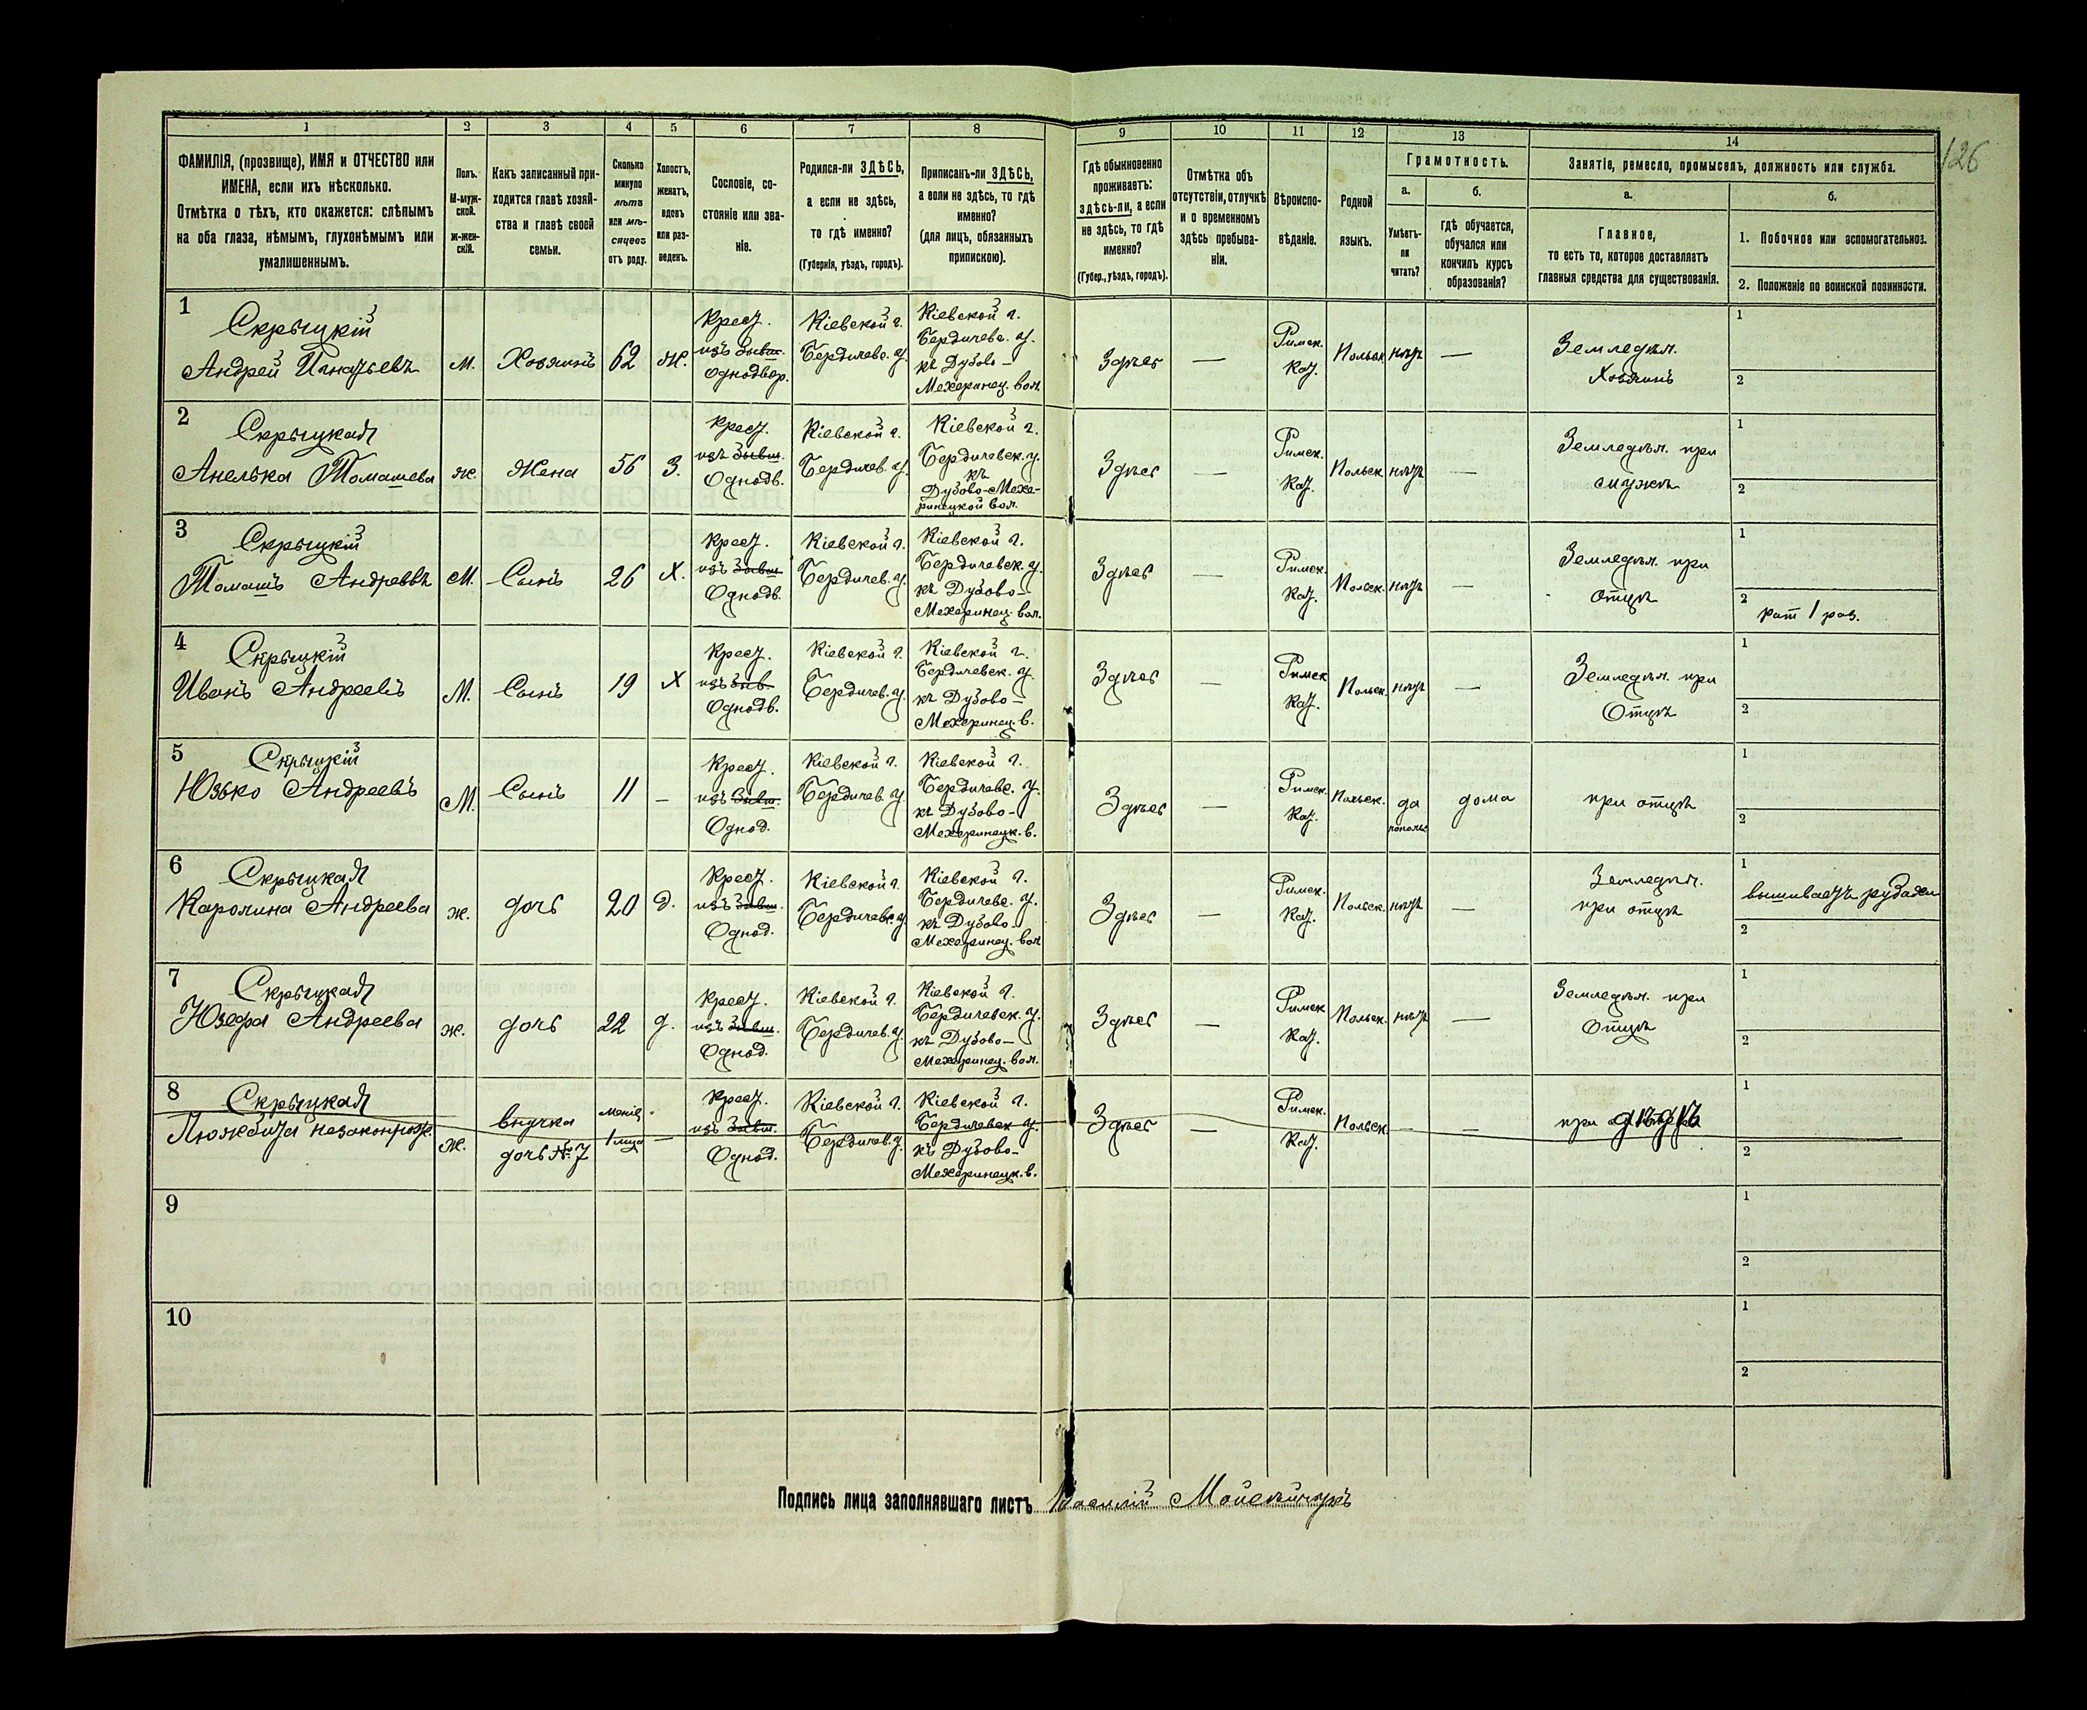 126
1 2 3 4 5 6 7 8 9 10 11 12 13 14
ФАМИЛІЯ, (прозвище), ИМЯ и ОТЧЕСТВО или
ИМЕНА, если ихъ нѣсколько.
Отмѣтка о тѣхъ, кто окажется: слѣпымъ
на оба глаза, нѣмымъ, глухонѣмымъ или
умалишеннымъ.
Полъ.
М-муж-
ской.
ж-жен-
скій.
Какъ записанный при-
ходится главѣ хозяй-
ства и главѣ своей
семьи.
Сколько
минуло
лѣтъ
или мѣ-
сяцевъ
отъ роду.
Холостъ,
женатъ,
вдовъ
или раз-
веденъ.
Сословіе, со-
стояніе или зва-
ніе.
Родился-ли ЗДѢСЬ,
а если не здѣсь,
то гдѣ именно?
(Губернія, уѣздъ, городъ).
Приписанъ-ли ЗДѢСЬ,
а если не здѣсь, то гдѣ
именно?
(для лицъ, обязанныхъ
припискою).
Гдѣ обыкновенно
проживаетъ:
здѣсь-ли, а если
не здѣсь, то гдѣ
именно?
(Губер., уѣздъ, городъ).
Отмѣтка объ
отсутствіи, отлучкѣ
и о временномъ
здѣсь пребыва-
ніи.
Вѣроиспо-
вѣданіе.
Родной
языкъ.
Грамотность.
а.
Умѣетъ-
ли
читать?
б.
гдѣ обучается,
обучался или
кончилъ курсъ
образованія?
Занятіе, ремесло, промыселъ, должность или служба.
а.
Главное,
то есть то, которое доставляетъ
главныя средства для существованія.
б.
1. Побочное или вспомогательное.
2. Положеніе по воинской повинности.
1
Скрыцкій
Андрей Игнатьевъ
М.
Хозяинъ
62
Ж.
Крест.
изъ бывш.
Однодвор.
Кіевской г.
Бердичевс. у.
Кіевской г.
Бердичевс. у.
къ Дубово-
Мехеринец. вол.
Здѣсь
—
Римск.
Кат.
Польск.
нѣтъ
—
Земледѣл.
Хозяинъ
1
2
2
Скрыцкая
Анелька Томашева
ж.
Жена
56
З.
Крест.
изъ бывш.
Однодв.
Кіевской г.
Бердичев. у.
Кіевской г.
Бердичевск. у.
къ
Дубово-Мехе-
ринецкой вол.
Здѣсь
—
Римск.
Кат.
Польск.
нѣтъ
—
Земледѣл. при
мужѣ
1
2
3
Скрыцкій
Томашъ Андреевъ
М.
Сынъ
26
Х.
Крест.
изъ бывш.
Однодв.
Кіевской г.
Бердичев. у.
Кіевской г.
Бердичевск. у.
къ Дубово-
Мехеринец. вол.
Здѣсь
—
Римск.
Кат.
Польск.
нѣтъ
—
Земледѣл. при
отцѣ
1
2
рат 1 раз.
4
Скрыцкій
Иванъ Андреевъ
М.
Сынъ
19
Х
Крест.
изъ быв.
Однодв.
Кіевской г.
Бердичев. у.
Кіевской г.
Бердичевск. у.
къ Дубово-
Мехеринец. в.
Здѣсь
—
Римск
Кат.
Польск.
нѣтъ
—
Земледѣл. при
Отцѣ
1
2
5
Скрыцкій
Юзько Андреевъ
М.
Сынъ
11
—
Крест.
изъ бывш.
Однод.
Кіевской г.
Бердичев. у.
Кіевской г.
Бердичевс. у.
къ Дубово-
Мехеринецк. в.
Здѣсь
—
Римск.
Кат.
Польск.
да
дома
при отцѣ
1
2
6
Скрыцкая
Каролина Андреева
ж.
дочь
20
д.
Крест.
изъ бывш.
Однод.
Кіевской г.
Бердичевс. у.
Кіевской г.
Бердичевс. у.
къ Дубово-
Мехеринец. вол.
Здѣсь
—
Римск.
Кат.
Польск.
нѣтъ
—
Земледѣл.
при отцѣ
1
вышиваетъ рубахи
2
7
Скрыцкая
Юзефа Андреева
ж.
дочь
22
д.
Крест.
изъ бывш.
Однод.
Кіевской г.
Бердичев. у.
Кіевской г.
Бердичевск. у.
къ Дубово-
Мехеринец. вол.
Здѣсь
—
Римск
Кат.
Польск.
нѣтъ
—
Земледѣл. при
Отцѣ
1
2
8
Скрыцкая
незаконрож.
Ж.
внучка
дочь № 7
менѣе
1
—
Крест.
изъ бывш.
Однод.
Кіевской г.
Бердичев. у.
Кіевской г.
Бердичевск у.
къ Дубово-
Мехеринецк. в.
Здѣсь
—
Римск.
Кат.
Польск
—
—
при дѣдѣ
1
2
9
1
2
10
1
2
Подпись лица заполнявшаго листъ Василій